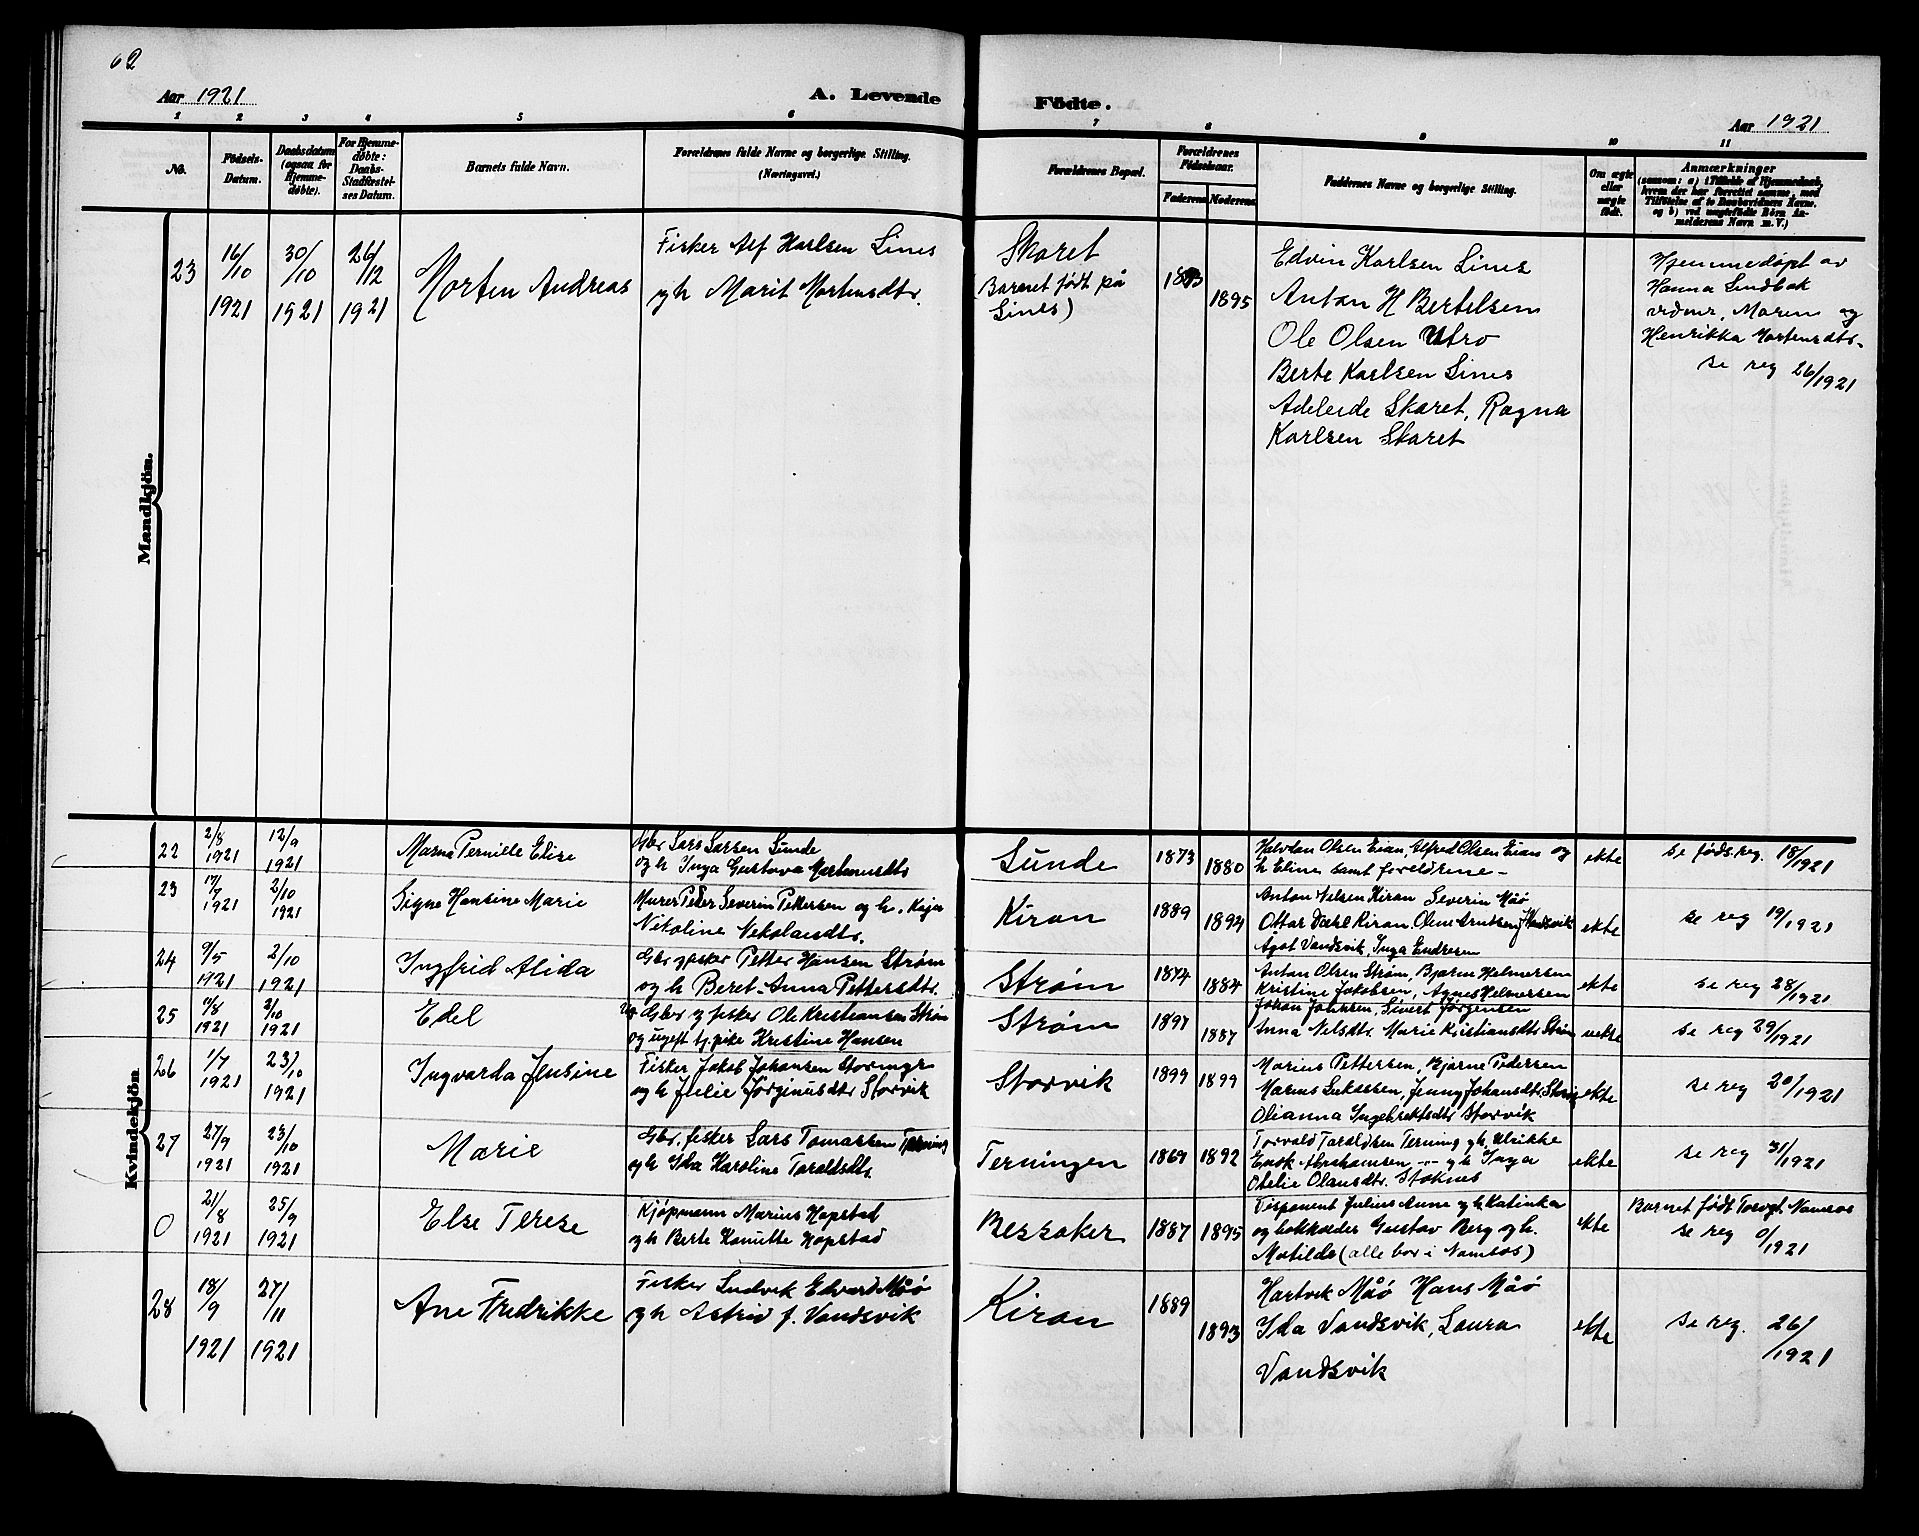 62
Aar 1921
A. Levende Födte.
Aar 1921
1 2 3 4 5 6 7 8 9 10 11
No.
Födsels-
Datum.
Daabsdatum
(ogsaa for
Hjemme-
döbte).
For Hjemme-
döbte:
Daabs-
Stadfæstel-
ses Datum.
Barnets fulde Navn.
Forældrenes fulde Navne og borgerlige Stilling.
(Næringsvei.)
Forældrenes Bopæl.
Forældrenes
Födselsaar.
Faderens
Moderens
Faddernes Navne og borgerlige Stilling.
Om ægte
eller
uægte
födt.
Anmærkninger
(saasom: a) i Tilfælde af Hjemmedaab,
hvem der har forrettet samme, med
Tilföielse af to Daabsvidners Navne,
og b) ved uægtefödte Börn An-
melderens Navn m. V.)
Mandkjön.
23
16/10
1921
30/10
1921
26/12
1921
Morten Andreas
Fisker Alf Karlsen Lines
og h Marit Mortensdtr.
Skaret
(Barnet født på
Lines)
1895
Edvin Karlsen Lines
Anton H Bertelsen
Ole Olsen Utro
Berte Karlsen Lines
Adeleide Skaret, Ragna
Karlsen Skaret
Hjemmedøpt av
Hanna Lindbak
vidner, Maren og
Henrikka Mortensdtr.
se reg 26/1921
Kvindekjön
22
2/8
1921
12/9
1921
Marna Perniele Elise
Gbr Lars Larsen Sunde
og h Inga Gustava Martinusdtr
Sunde
1873
1880
Halvdan Olsen Eian, Elfred Olsen Eian og
h Eline samt foreldrene -
ekte
se føds.reg. 18/1921
23
17/7
1921
2/10
1921
Signe Hansine Marie
Murer Peder Severin Pettersen og h. Kaja
Nikoline Nikolaisdtr.
Kiran
1889
1894
Anton Nilsen Kiran Severin Måø
Ottar Dahl Kiran, Oline Arntsen Vandsvik
Agot Vandsvik, Inga Endresen
ekte
se reg 19/1921
24
9/5
1921
2/10
1921
Ingfrid Alida
Gbr og fisker Petter Hansen Strøm
og h Beret-Anna Pettersdtr.
Strøm
1874
1884
Anton Olsen Strøm, Bjarne Helmersen
Kristine Jakobsen, Agnes Helmersen
ekte
se reg 28/1921
25
11/8
1921
2/10
1921
Edel
Ug Gbr og fisker Ole Kristiansen Strøm
og ugift tj.pike Kristine Hansen
Strøm
1897
1887
Johan Johnsen, Sivert Jørgensen
Anna Nilsdtr. Marie Kristiansdtr Strøm
uekte
se reg 29/1921
26
1/7
1921
23/10
1921
Ingvarda Jensine
Fisker Jakob Johansen Storingv
og h Julie Jørginusdtr Storvik
Storvik
1899
1899
Marius Pettersen, Bjarne Pedersen
Marius Lukassen, Jenny Johansdtr Storing
Olianna Ingebrektsdtr Storvik
ekte
se reg 20/1921
27
27/9
1921
23/10
1921
Marie
Gbr. fisker Lars Tomassen Terning
og h Ida Karoline Taraldsdtr.
Terningen
1869
1892
Torvald Taraldsen Terning og h Ulrikke
Enok Abrahamsen -"- og h Inga
Otelie Olausdtr. Stoknes
ekte
se reg 31/1921
0
21/8
1921
25/9
1921
Else Terese
Kjøpmann Marius Hopstad
og h Berte Hanutte Hopstad
Bessaker
1887
1895
Disponent Julius Aune og h Katinka
og bokholder Gustav Berg og h.
Matilde (alle bor i Namsos)
ekte
Barnet født Torvgt Namsos
se reg 0/1921
28
18/9
1921
27/11
1921
Ane Fredrikke
Fisker Ludvik Edvard Måø
og h Astrid f. Vandsvik
Kiran
1889
1893
Hartvik Måø Hans Måø
Ida Vandsvik, Laura
Vandsvik
ekte
se reg. 26/1921